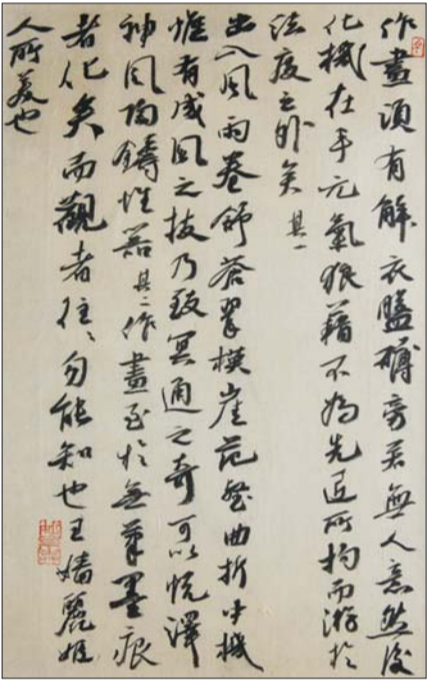 作畫須有解衣盤礴旁若無人意然後
化機在手元氣狼藉不為先匠所拘而游於
法度之外矣 其一
出入風雨卷舒蒼翠模崖范壑曲折中機
惟有成風之技乃致冥通之奇可以悅澤
神風陶鑄性器 其二 作畫至於無筆墨痕
者化矣而觀者往々勿能知也王嬙麗姬
人所美也